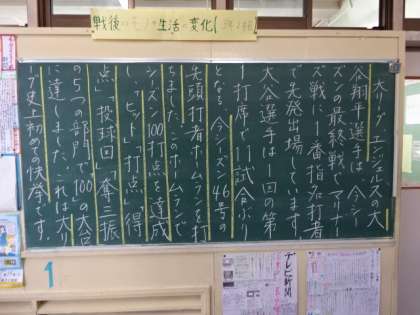 戦後の
生活の変化
大リーグエンジェルスの大
谷翔平選手は、今シー
ズンの最終戦でマリナー
ズ戦に1番指名打者
で先発出場しています。
大谷選手は1回の第
1打席で11試合ぶり
となる今シーズン46号の
先頭打者ホームランを打
ちました。このホームランで
シーズン100打点を達成
し、「ヒット」「打点」「得
点」「投球回」「奪三振」
の5つの部門で"100"の大台
に達しました。これは大リ
ーグ史上初めての快挙です。
1
テレビ新聞